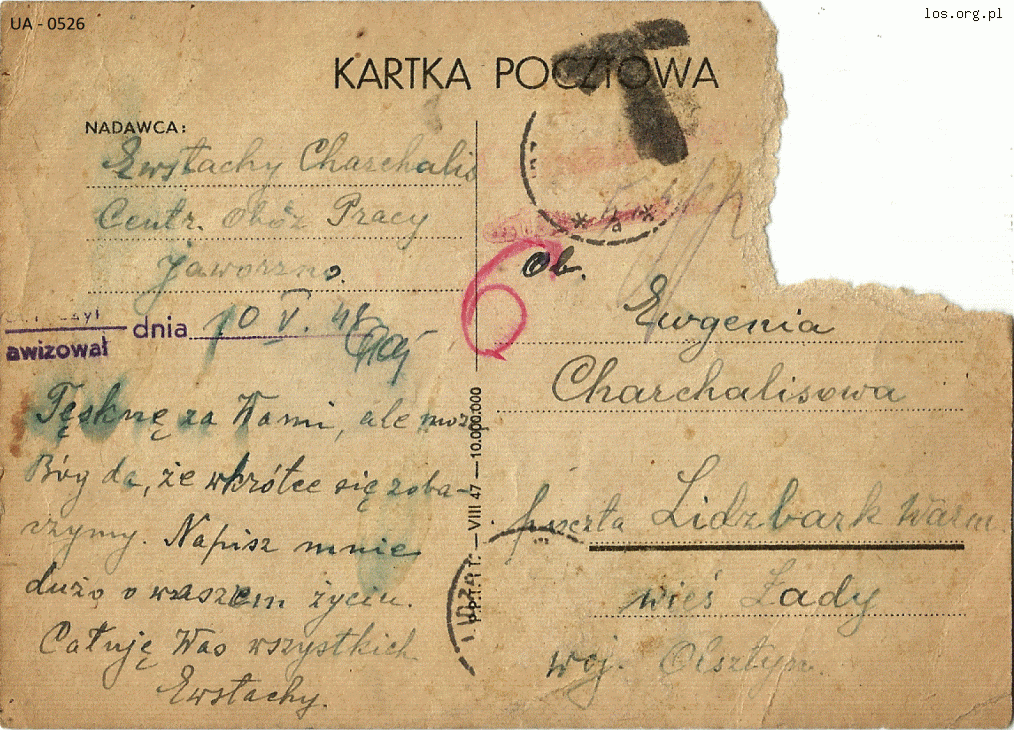 UA - 0526
los.org.pl
KARTKA POCZTOWA
NADAWCA:
Ewstachy Charchalis
Centr. Obóz Pracy
Jaworzno.
awizował
dnia 10 V. 48
Tęsknę za Wami, ale może
Bóg da, że wkrótce się zoba-
czymy. Napisz mnie
dużo o waszem życiu.
Całuję Was wszystkich
Ewstachy.
VIII 47 — 10.000.000
Ob.
Ewgenia
Charchalisowa
poczta Lidzbark Warm
wieś Żady
woj. Olsztyn